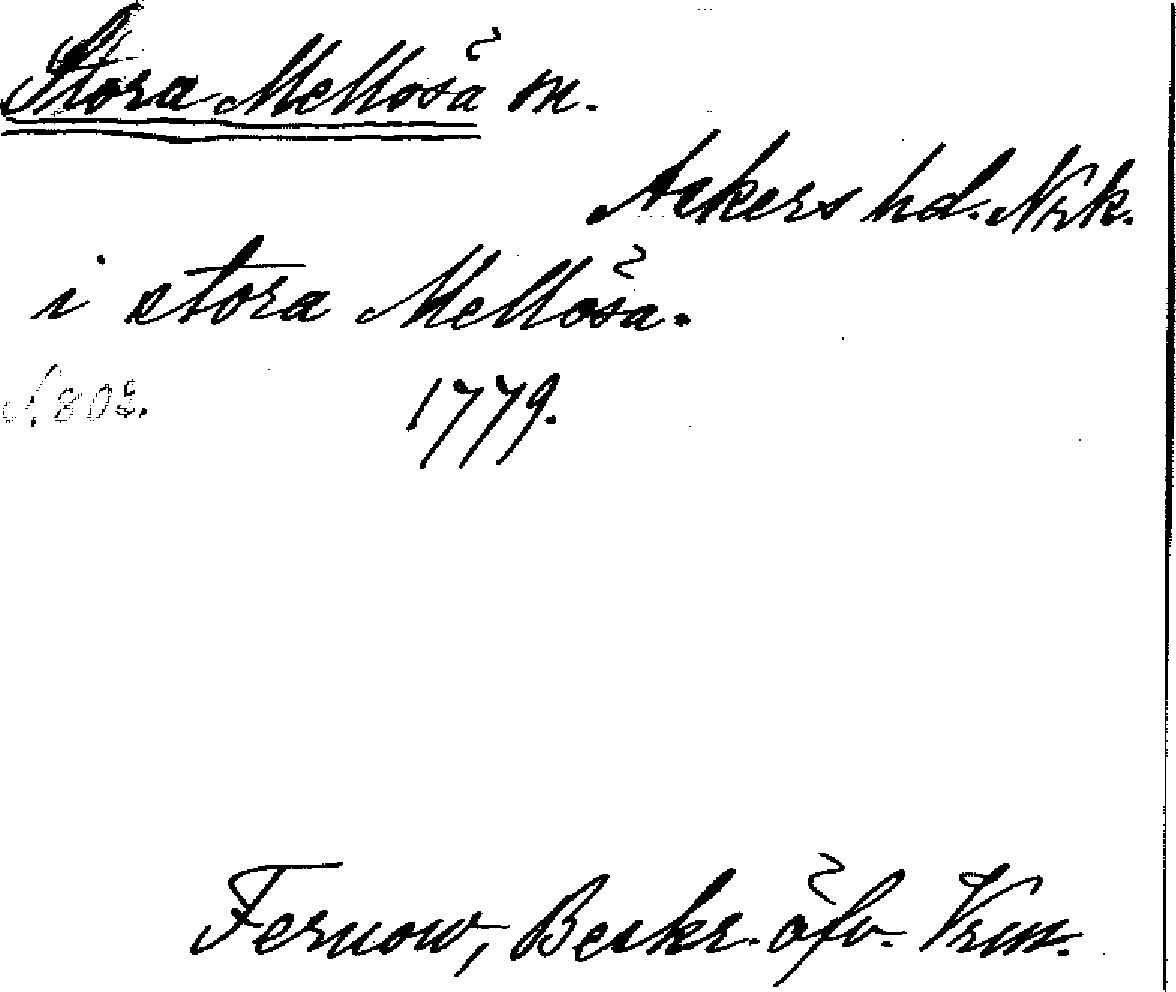 Stora Mellösa m.
Askers hd. Nrk.
i stora Mellösa.
S. 802.
1779.
Fernow, Beskr. öfv. Vrm.